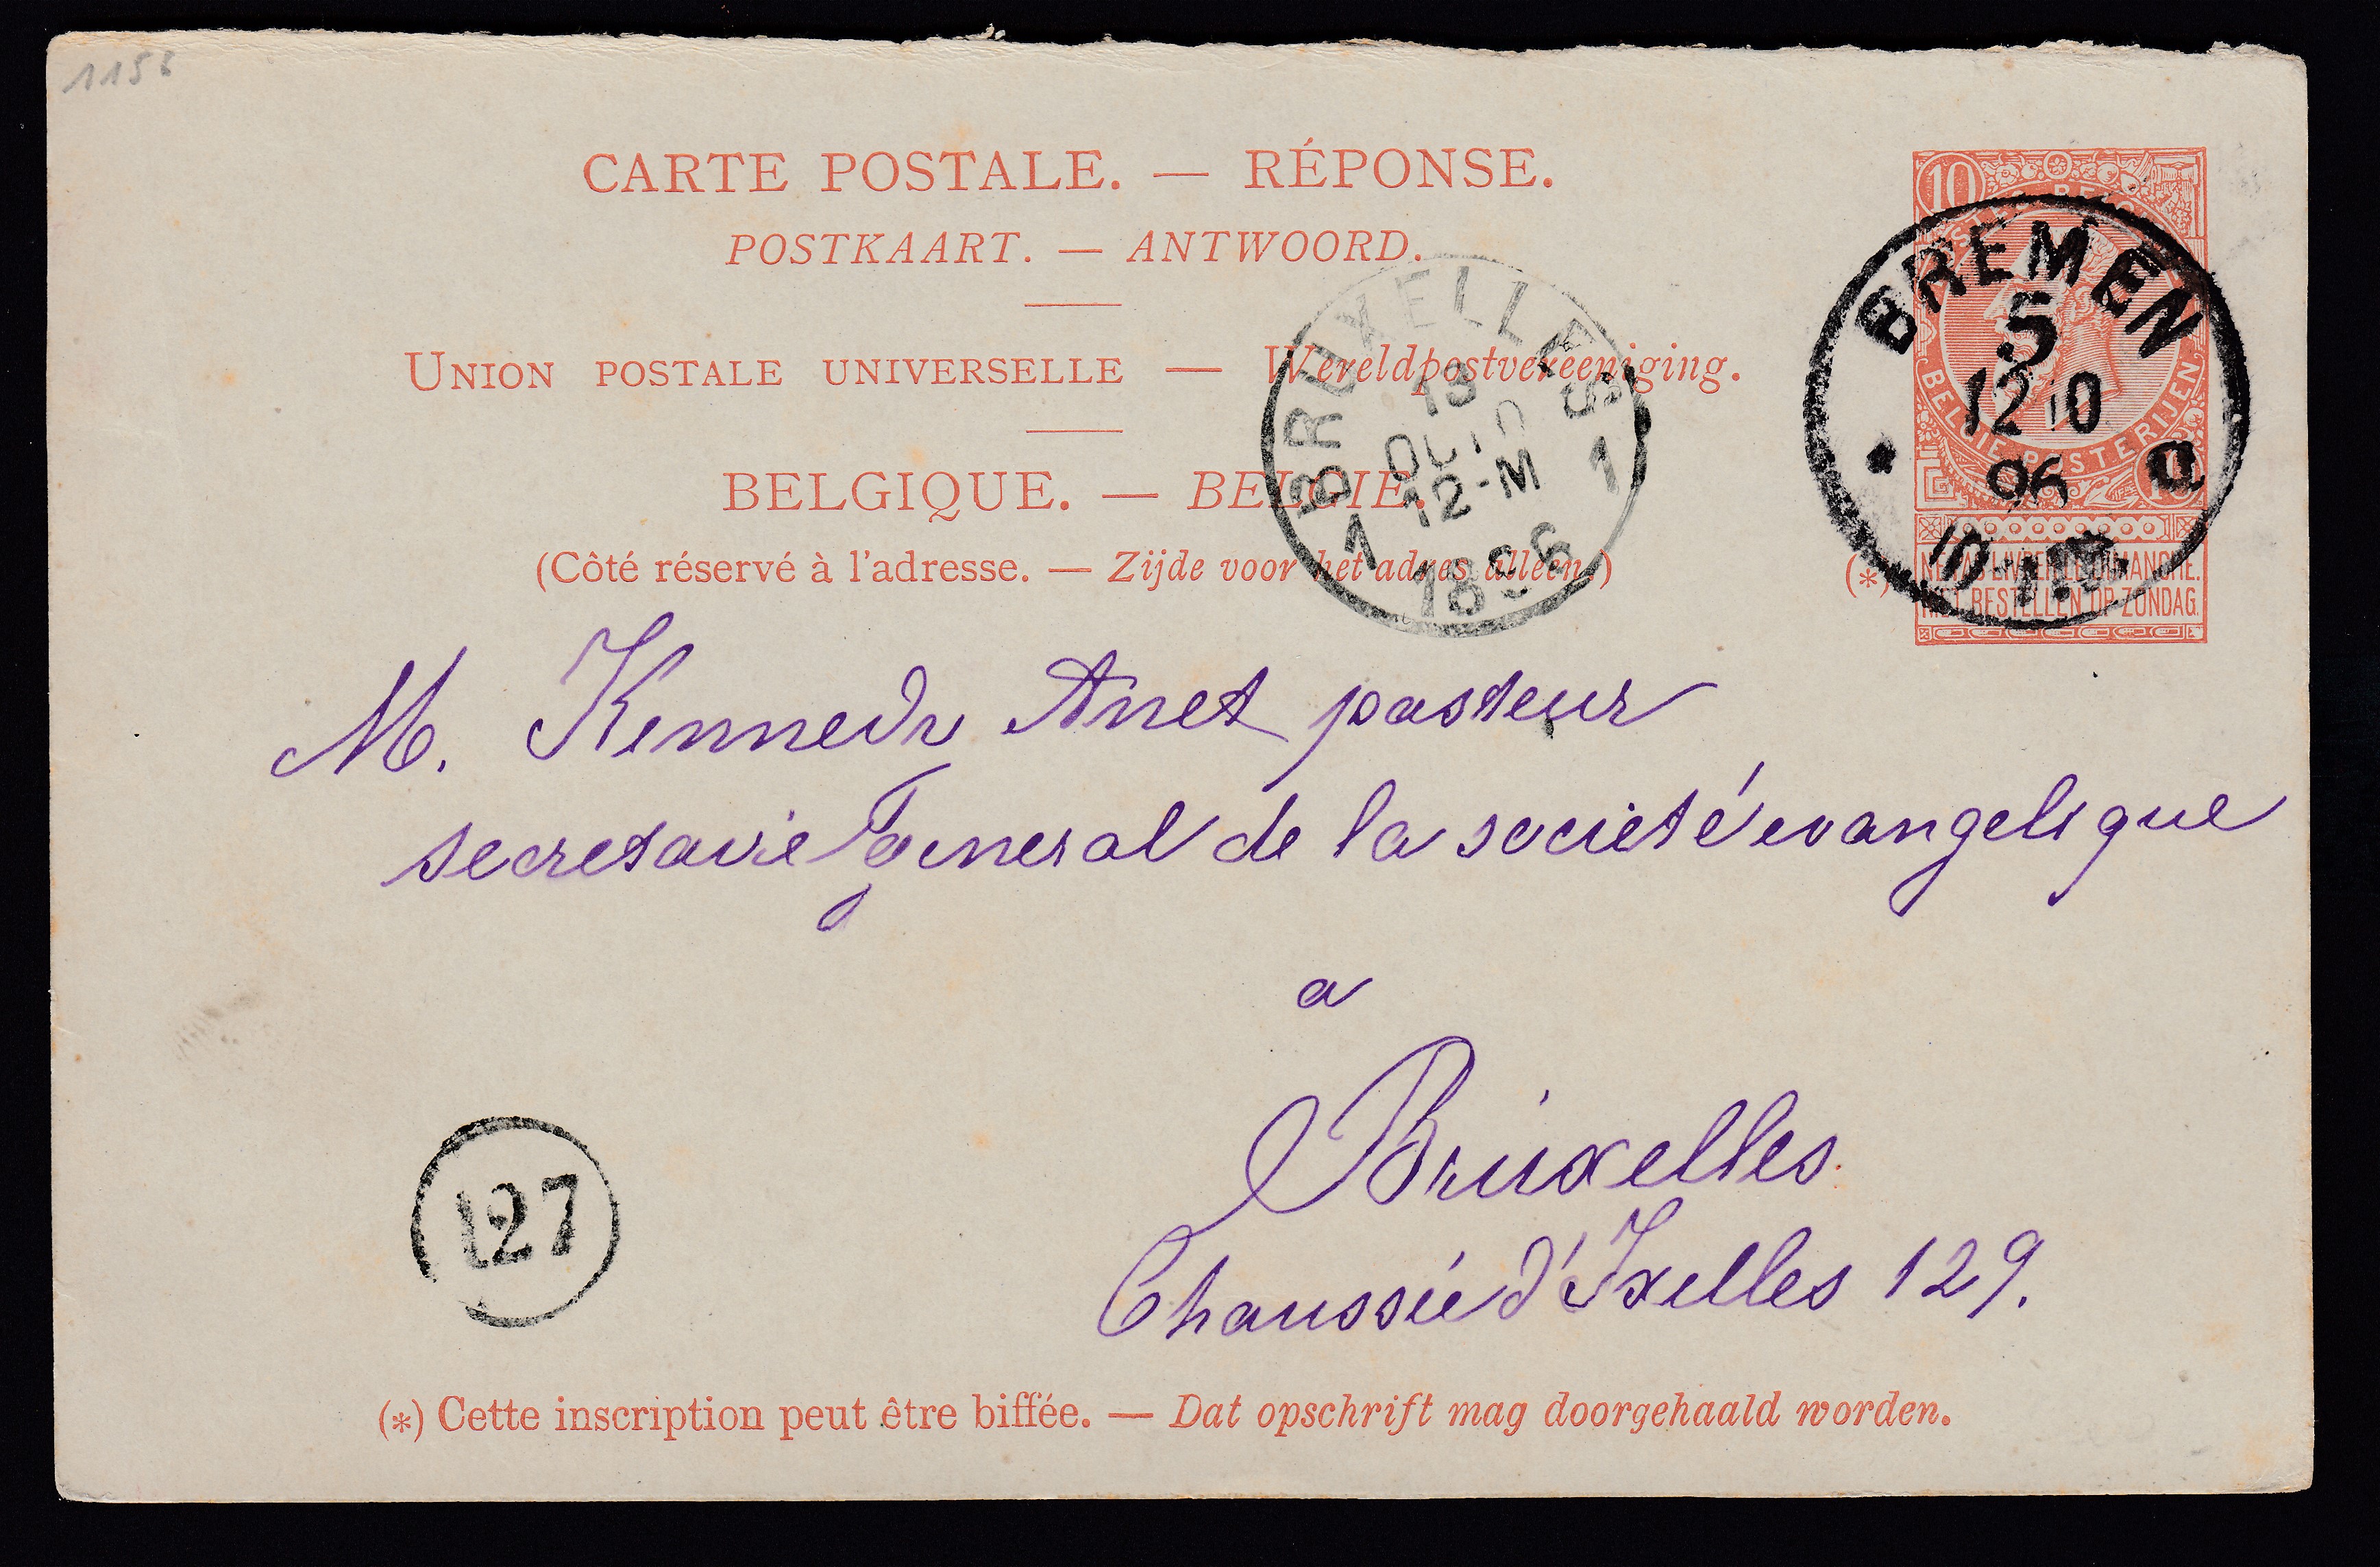 1156
CARTE POSTALE. — RÉPONSE.
POSTKAART. — ANTWOORD.
UNION POSTALE UNIVERSELLE — Wereldpostvereeniging.
BELGIQUE. — BELGIE.
(Côté réservé à l'adresse. — Zijde voor het adres alleen.)
BRUXELLES
13
OCTO
12-M
1 1
1896
10
BREMEN
5
12 10
96
* a
BELGIE POSTERIJEN
(*) NE PAS LIVRER LE DIMANCHE.
NIET BESTELLEN OP ZONDAG.
M. Kennedy Anet pasteur
secretaire general de la societé evangelique
a
Bruxelles.
Chaussée d'Ixelles 129.
127
(*) Cette inscription peut être biffée. — Dat opschrift mag doorgehaald worden.